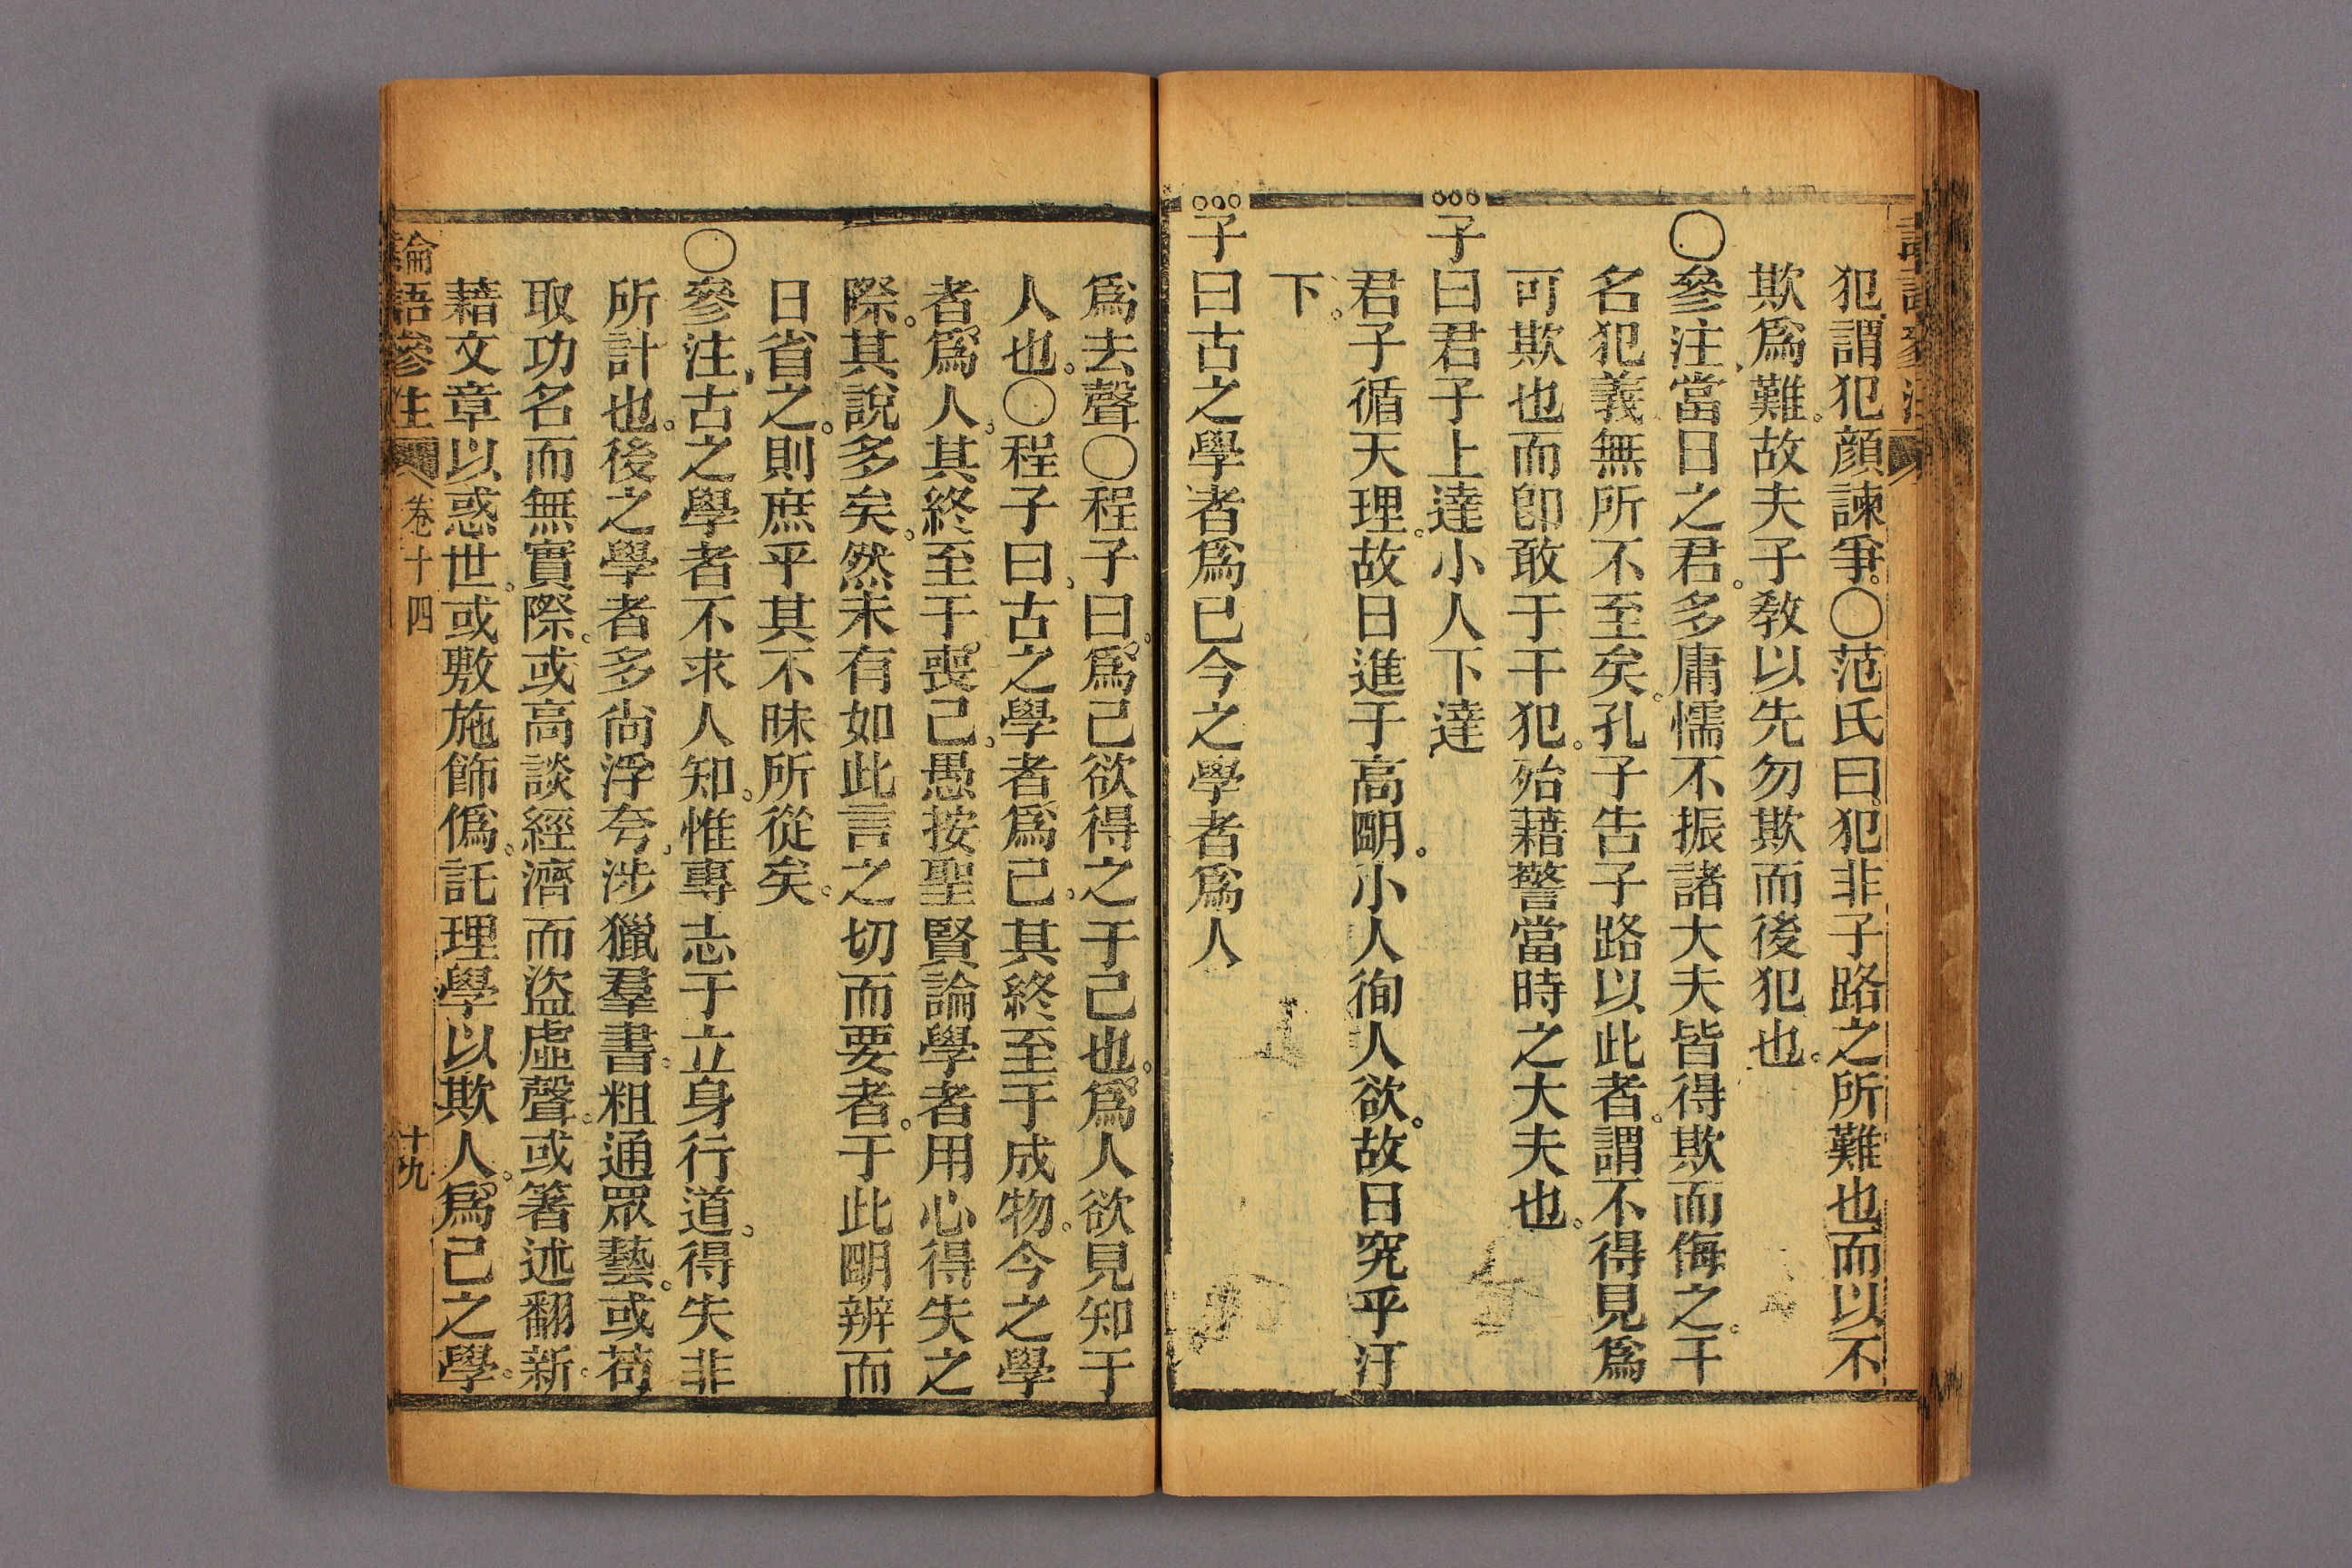 犯謂犯顔諫爭。〇范氏曰。犯非子路之所難也。而以不
欺爲難。故夫子敎以先勿欺而後犯也。
〇參注、當日之君。多庸懦不振諸大夫皆得欺而侮之。干
名犯義無所不至矣。孔子告子路以此者。謂不得見爲
可欺也而卽敢于干犯。殆藉警當時之大夫也。
子曰君子上達小人下達
君子循天理。故日進于高明。小人徇人欲。故日究乎汙
下。
子曰古之學者爲已今之學者爲人
爲去聲〇程子曰。爲己欲得之于己也。爲人欲見知于
人也。〇程子曰、古之學者爲己。其終至于成物。今之學
者爲人、其終至于喪己、愚按聖賢論學者用心得失之
際。其說多矣。然未有如此言之切而要者。于此明辨而
日省之。則庶乎其不昧所從矣。
〇參注、古之學者不求人知。惟專志于立身行道、得失非
所計也。後之學者多尙浮夸、涉獵羣書。粗通眾藝。或苟
取功名而無實際。或高談經濟而盜虛聲。或箸述翻新。
藉文章以惑世。或敷施飾僞。託理學以欺人。爲己之學。
論語參注 卷十四 十九